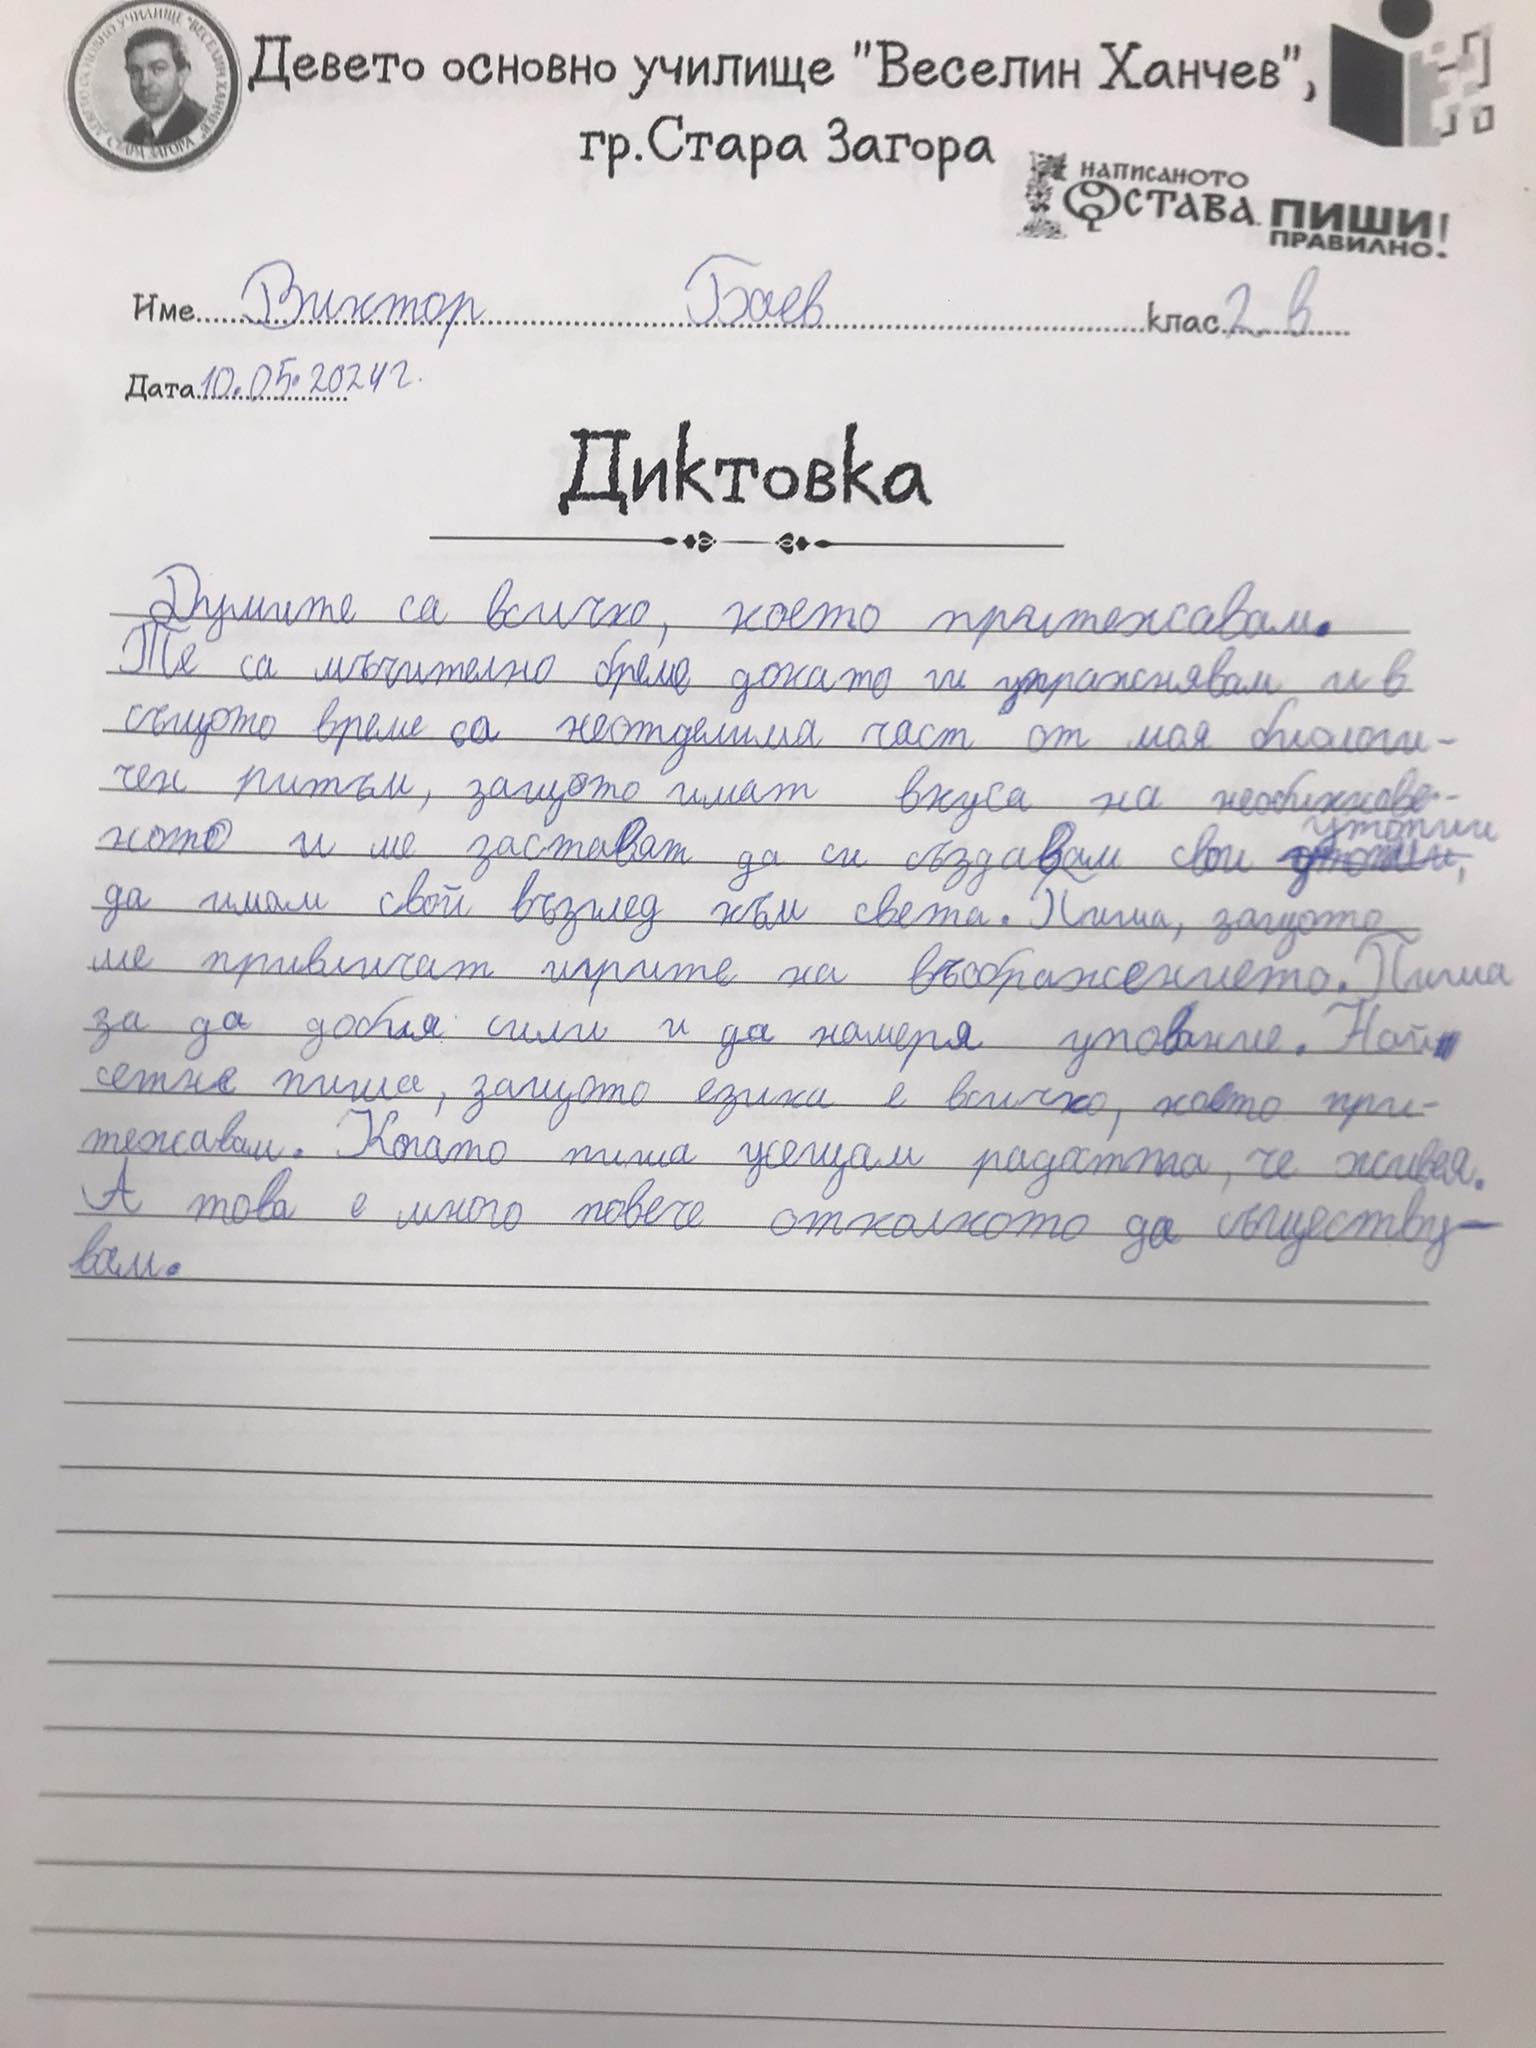 ДЕВЕТО ОСНОВНО УЧИЛИЩЕ "ВЕСЕЛИН ХАНЧЕВ" СТАРА ЗАГОРА
Девето основно училище "Веселин Ханчев",
гр.Стара Загора
НАПИСАНОТО
ОСТАВА. ПИШИ
ПРАВИЛНО!
Име Виктор Баев клас 2 в
Дата 10.05.2024г.
Диктовка
Думите са всичко, което притежавам.
Те са мъчително бреме докато ги упражнявам и в
същото време са неотделима част от моя биологи-
чен ритъм, защото имат вкуса на необикнове-
ното и ме заставят да си създавам свои утопии,
да имам свой възглед към света. Пиша, защото
ме привличат игрите на въображението. Пиша
за да добия сили и да намеря упование. Най
сетне пиша, защото езика е всичко, което при-
тежавам. Когато пиша усещам радостта, че живея.
А това е много повече отколкото да съществу-
вам.